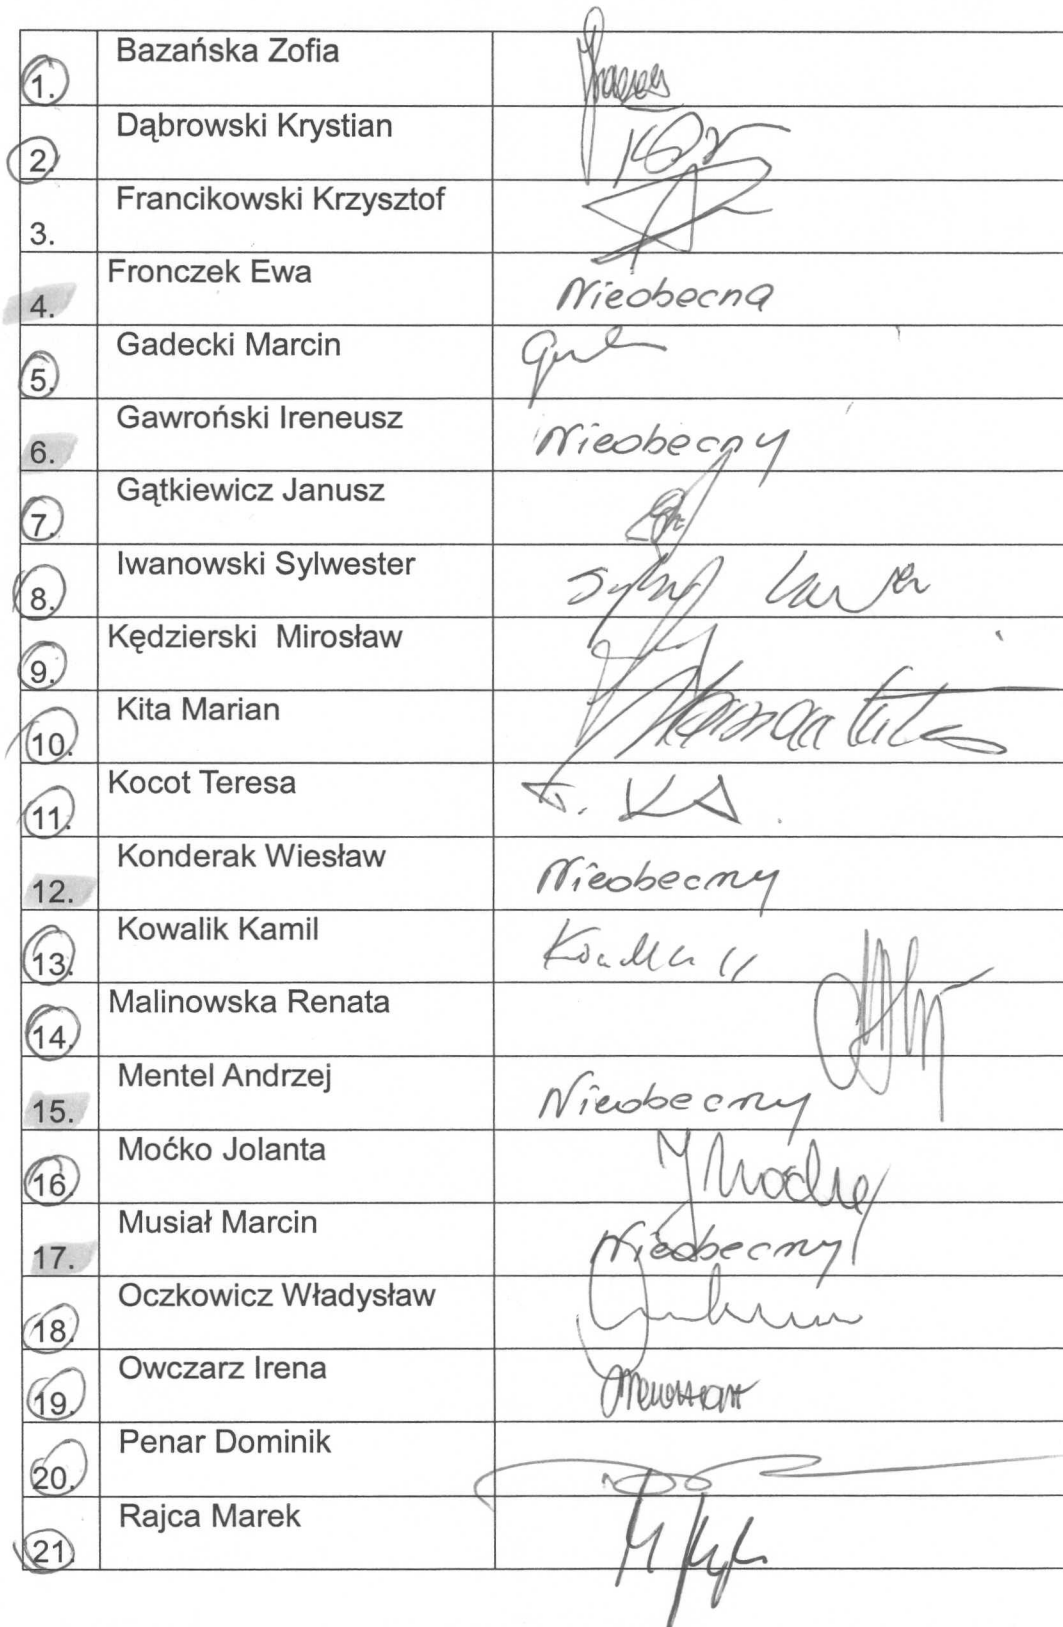 1. Bazańska Zofia
2. Dąbrowski Krystian
3. Francikowski Krzysztof
4. Fronczek Ewa Nieobecna
5. Gadecki Marcin
6. Gawroński Ireneusz Nieobecny
7. Gątkiewicz Janusz
8. Iwanowski Sylwester
9. Kędzierski Mirosław
10. Kita Marian
11. Kocot Teresa
12. Konderak Wiesław Nieobecny
13. Kowalik Kamil
14. Malinowska Renata
15. Mentel Andrzej Nieobecny
16. Moćko Jolanta
17. Musiał Marcin Nieobecny
18. Oczkowicz Władysław
19. Owczarz Irena
20. Penar Dominik
21. Rajca Marek